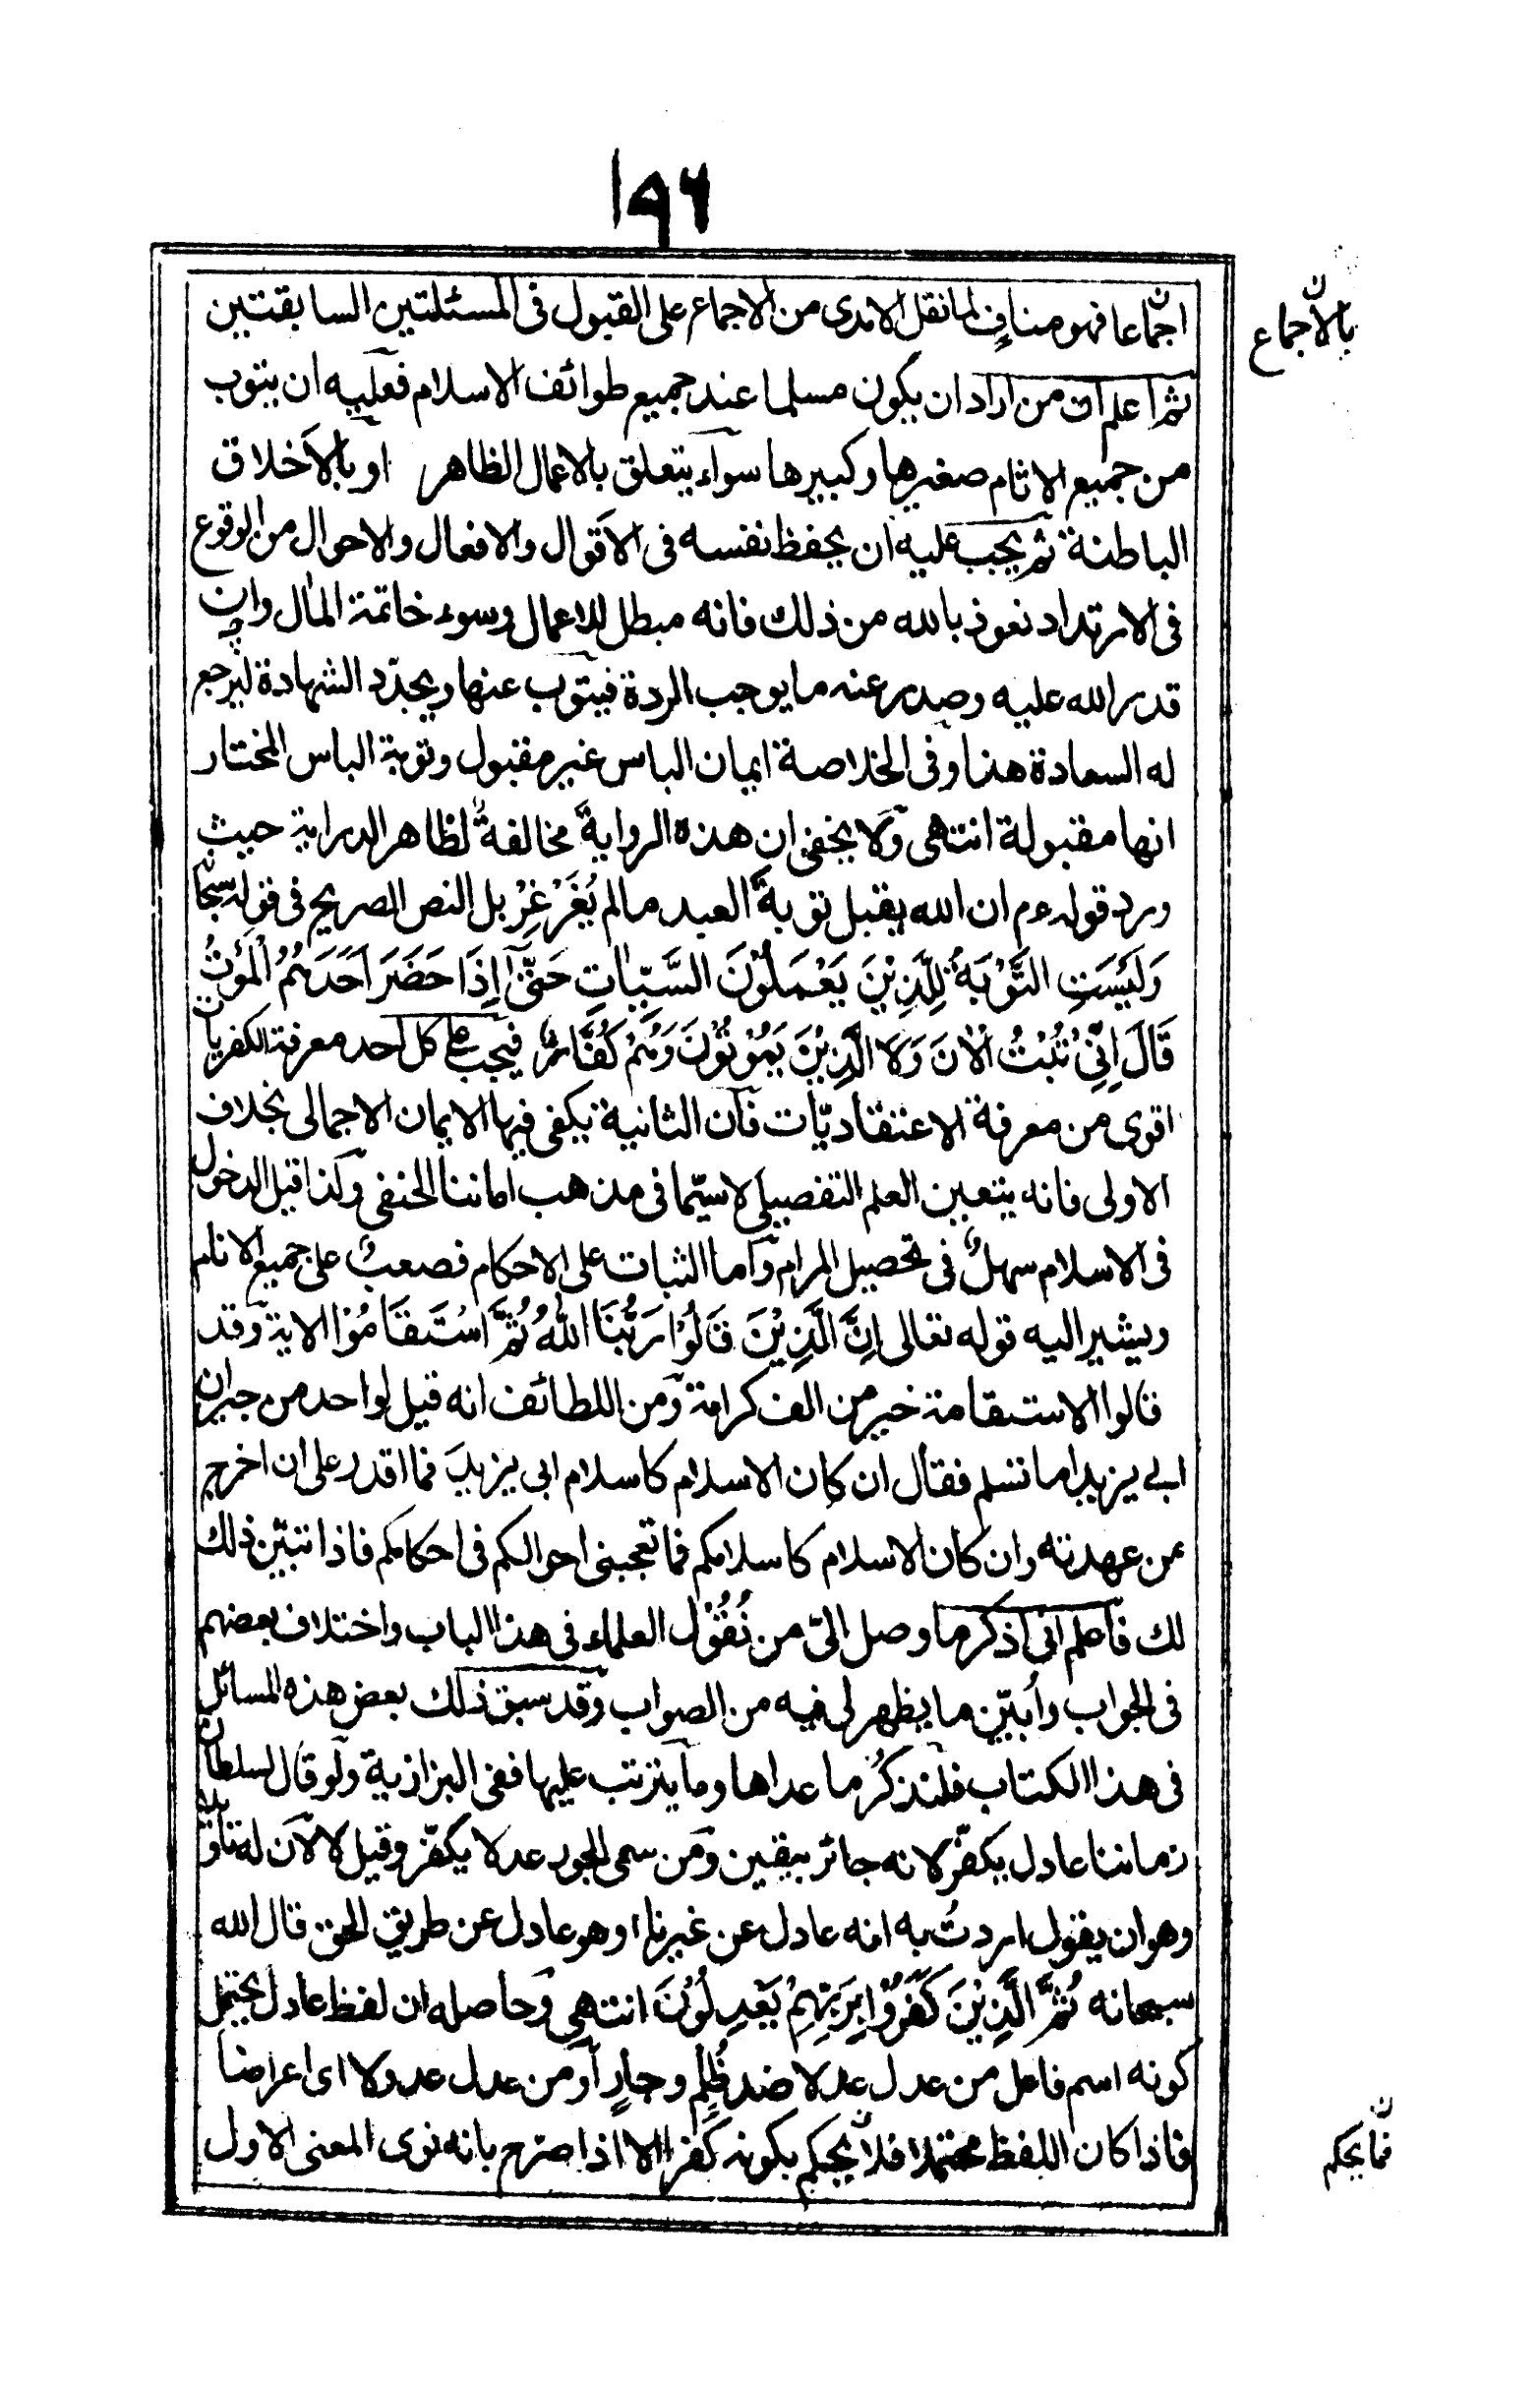 ۱۹۶
اجماعا فهو مناف لما نقل الامدى من الاجماع على القبول فى المسئلتين السابقتين
بالاجماع
ثم اعلم ان من اراد ان يكون مسلما عند جميع طوائف الاسلام فعليه ان يتوب
من جميع الاثام صغيرها وكبيرها سواء يتعلق بالاعمال الظاهر او بالاخلاق
الباطنة ثم يجب عليه ان يحفظ نفسه فى الاقوال والافعال والاحوال من الوقوع
فى الارتداد نعوذ بالله من ذلك فانه مبطل للاعمال وسوء خاتمة المال وان
قدر الله عليه وصدر عنه ما يوجب الردة فيتوب عنها ويجدّد الشهادة ليرجع
له السعادة هذا وفى الخلاصة ايمان الباس غير مقبول وتوبة الباس المختار
انها مقبولة انتهى ولا يخفى ان هذه الرواية مخالفة لظاهر الدراية حيث
ورد قوله ءم ان الله يقبل توبة العبد مالم يُغَرْغِرْ بل النص الصريح فى قوله سبحا
وَلَيْسَتِ التَّوْبَةُ لِلَّذِيْنَ يَعْمَلُوْنَ السَّيِّاٰتِ حَتّٰى اِذَا حَضَرَ اَحَدَهُمُ الْمَوْتُ
قَالَ اِنِّىْ تُبْتُ الْاٰنَ وَلَا الَّذِيْنَ يَمُوْتُوْنَ وَهُمْ كُفَّارٌ فيجب على كل احد معرفة الكفريات
اقوى من معرفة الاعتقاديّات فان الثانية يكفى فيها الايمان الاجمالى بخلاف
الاولى فانه يتعين العلم التفصيلى لاسيّما فى مذهب امامنا الحنفى وكذا قيل الدخول
فى الاسلام سهلٌ فى تحصيل المرام واما الثبات على الاحكام فصعبٌ على جميع الانام
ويشير اليه قوله تعالى اِنَّ الَّذِيْنَ قَالُوْا رَبُّنَا اللّٰهُ ثُمَّ اسْتَقَامُوْا الاية وقد
قالوا الاستقامة خير من الف كرامة ومن اللطائف انه قيل لواحد من جيران
ابى يزيد اما تسلم فقال ان كان الاسلام كاسلام ابى يزيد فما اقدر على ان اخرج
عن عهدته وان كان الاسلام كاسلامكم فما تعجبنى احوالكم فى احكامكم فاذا تبيّن ذلك
لك فاعلم انى اذكر ما وصل الىّ من نُقُوْل العلماء فى هذا الباب واختلاف بعضهم
فى الجواب وابيّن ما يظهر لى فيه من الصواب وقد سبق ذلك بعض هذه المسائل
فى هذا الكتاب فلنذكُر ما عداها وما يترتب عليها ففى البزازية ولو قال لسلطان
زماننا عادل يكفّر لانه جائر بيقين ومن سمى الجور عدلا يكفّر وقيل لا لان له تاويلا
وهو ان يقول اردتُ به انه عادل عن غيرنا او هو عادل عن طريق الحق قال الله
سبحانه ثُمَّ الَّذِيْنَ كَفَرُوْا بِرَبِّهِمْ يَعْدِلُوْنَ انتهى وحاصله ان لفظ عادل يحتمل
كونه اسم فاعل من عدل عدلا ضد ظلم وجار او من عدل عدولا اى اعراضا
فاذا كان اللفظ محتملا فلا يحكم بكونه كفرا الا اذا صرّح بانه نوى المعنى الاول
فما يحكم